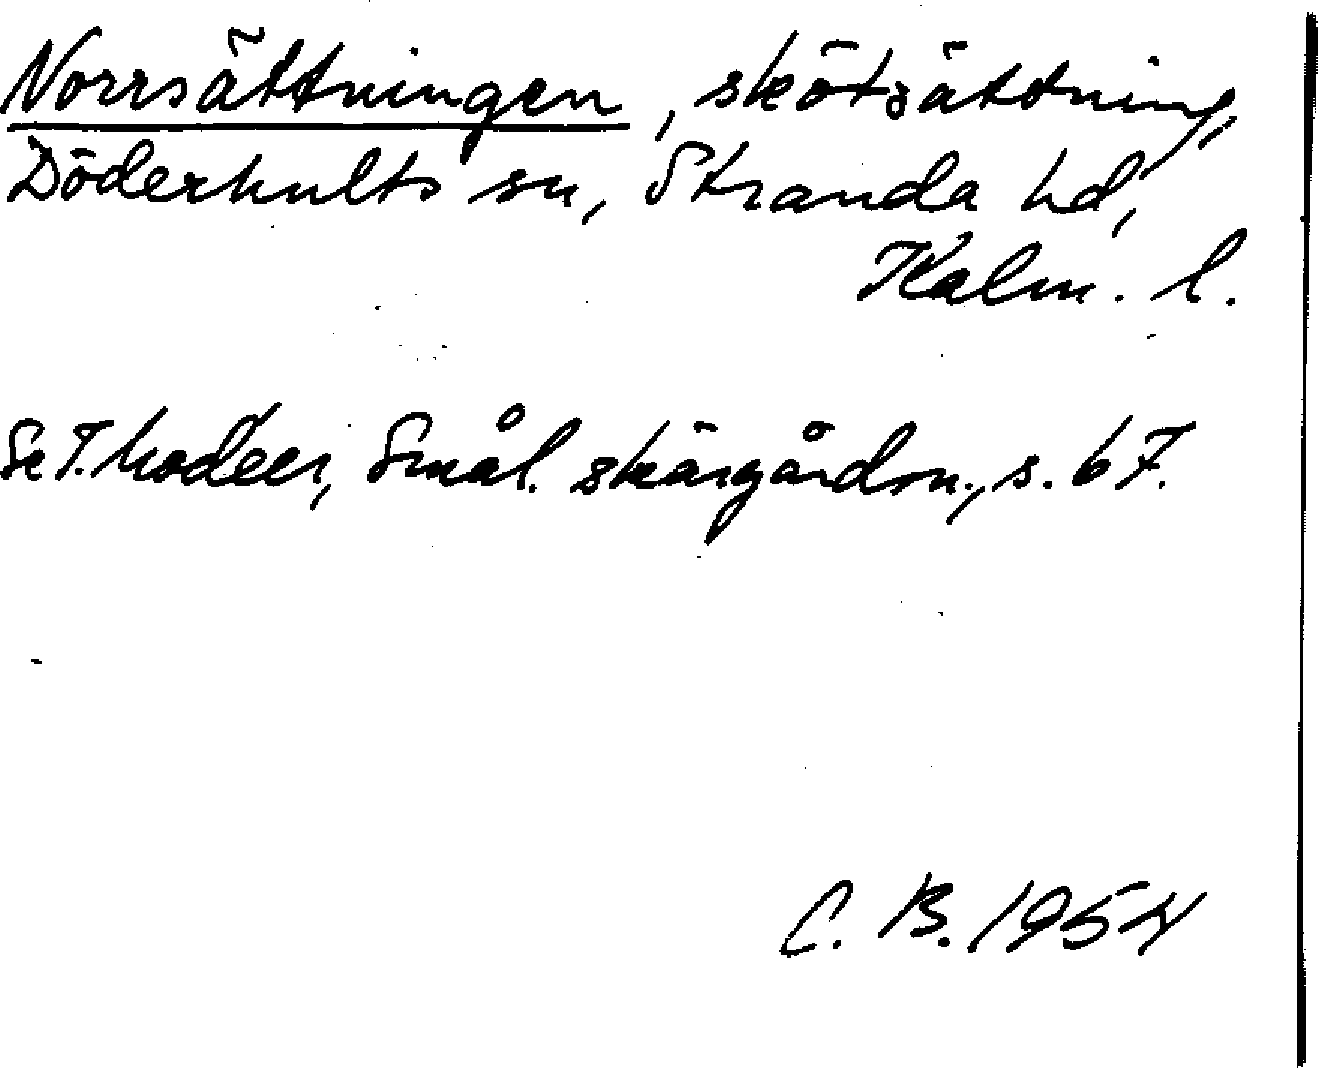 Norrsättningen, skötsättning,
Döderhults sn, Stranda hd,
Kalm. l.
Se I. Modeer, Smål. skärgårdsn., s. 67.
C. B. 1954